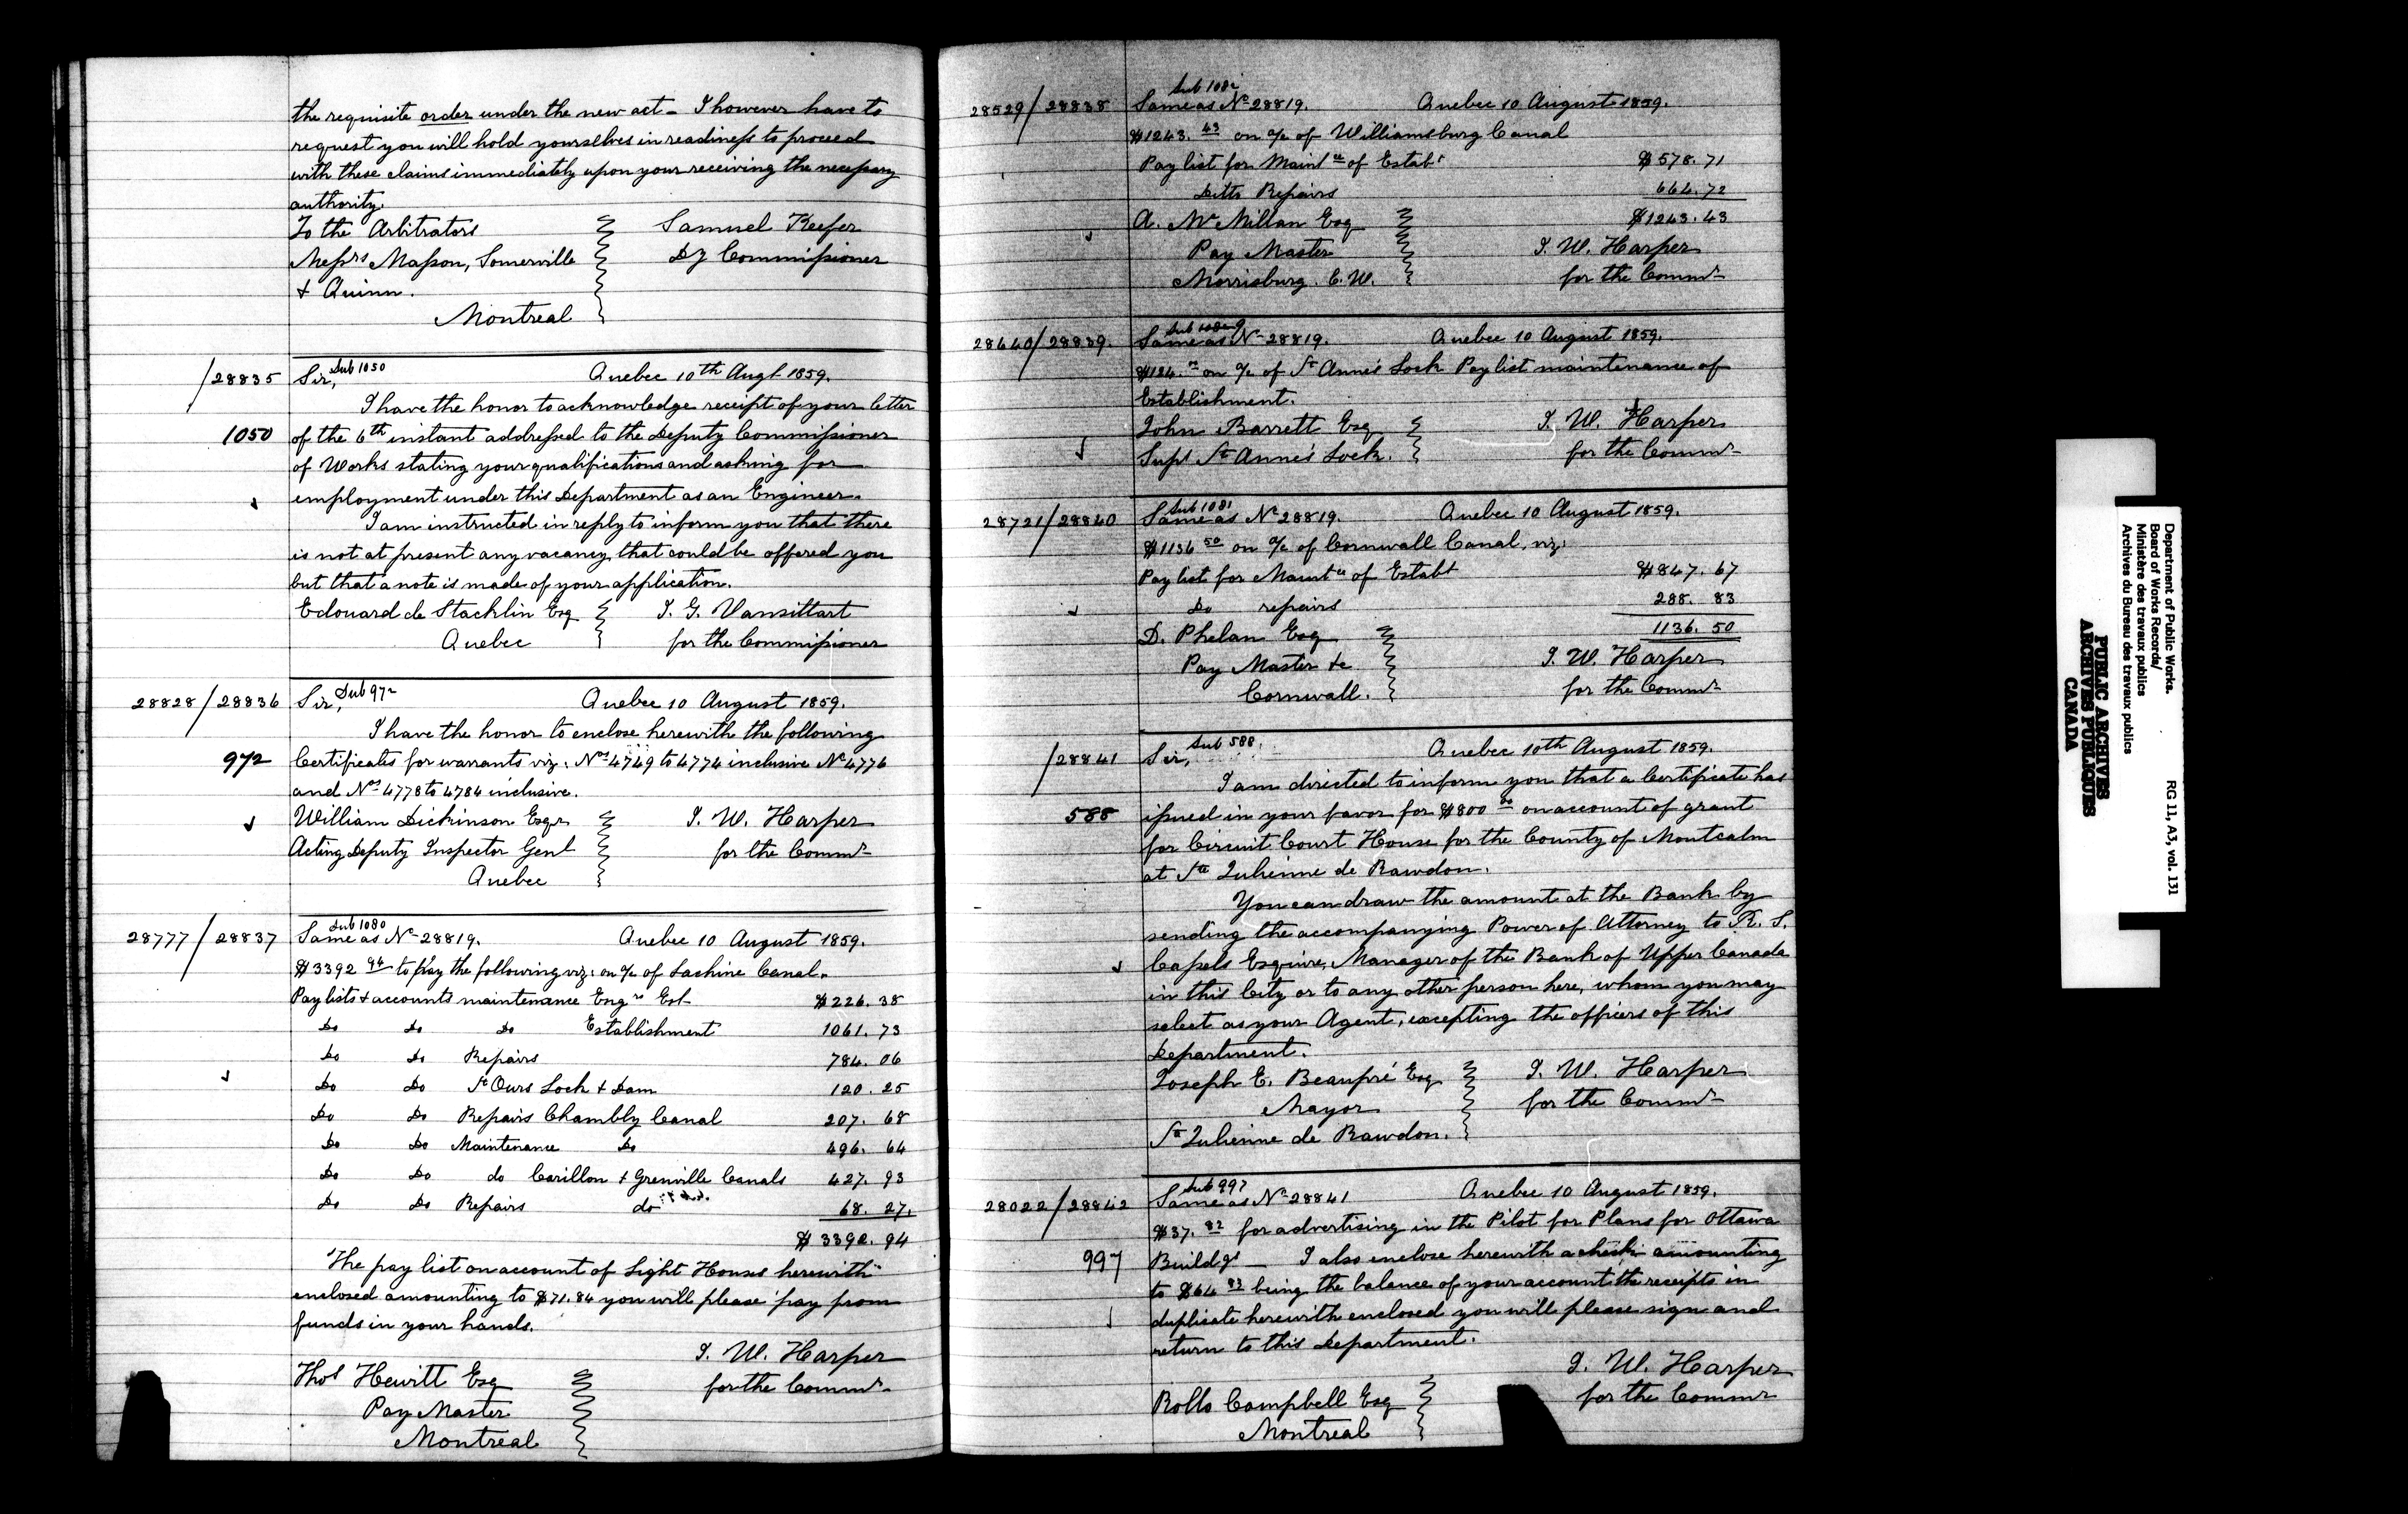 the requisite order under the new act - I however have to
request you will hold yourselves in readiness to proceed
with these claims immediately upon your receiving the necessary
authority.
To the Arbitrators
Samuel Keefer
Messrs Masson, Somerville
Dy Commissioner
& Quinn.
Montreal
/28835
Sir, Sub 1050
Quebec 10th Augt 1859.
I have the honor to acknowledge receipt of your letter
1050
of the 6th instant addressed to the Deputy Commissioner
of Works stating your qualifications and asking for
employment under this Department as an Engineer.
I am instructed in reply to inform you that there
is not at present any vacancy that could be offered you
but that a note is made of your application.
Edouard de Stacklin Esq
J. G. Vansittart
Quebec
for the Commissioner
28828/28836
Sir, Sub 972
Quebec 10 August 1859.
I have the honor to enclose herewith the following
972
Certificates for warrants viz: Nos 4749 to 4774 inclusive No 4776
and Nos 4778 to 4784 inclusive.
William Dickinson Esqr
J. W. Harper
Acting Deputy Inspector Genl
for the Commr
Quebec
Sub 1080
28777/28837
Same as No 28819.
Quebec 10 August 1859.
$3392 94 to pay the following viz: on a/c of Lachine Canal.
Pay lists & accounts maintenance Engrs Est
$226.38
Do Do Do Establishment 1061.73
Do Do Repairs 784.06
Do Do St Ours Lock & Dam 120.25
Do Do Repairs Chambly Canal 207.68
Do Do Maintenance Do 496.64
Do Do do Carillon & Grenville Canals 427.93
Do Do Repairs do 68.27.
$3392.94
The pay list on account of Light Houses herewith
enclosed amounting to $71.84 you will please pay from
funds in your hands.
J. W. Harper
Thos Hewitt Esq
for the Commr
Pay Master
Montreal
Sub 1082
28529/28838
Same as No 28819.
Quebec 10 August 1859.
$1243. 43 on a/c of Williamsburg Canal
Pay list for Maintce of Estabt
$578.71
Ditto Repairs
664.72
A. McMillan Esq
$1243.43
Pay Master
J. W. Harper
Morrisburg. C.W.
for the Commr
28640/28839.
Same as No 28819.
Quebec 10 August 1859.
on a/c of St Anne's Lock Pay list maintenance of
Establishment.
John Barrett Esq
J. W. Harper
Supt St Anne's Lock.
for the Commr
Sub 1081
28721/28840
Same as No 28819.
Quebec 10 August 1859.
$1136 50 on a/c of Cornwall Canal, viz:
Pay list for Maintce of Estabt
$847.67
Do repairs
288.83
D. Phelan Esq
1136.50
Pay Master &c
J. W. Harper
Cornwall.
for the Commr
/28841
Sir, Sub 588.
Quebec 10th August 1859.
I am directed to inform you that a Certificate has
588
issued in your favor for $800 00 on account of grant
for Circuit Court House for the County of Montcalm
at Ste Julienne de Rawdon.
You can draw the amount at the Bank by
sending the accompanying Power of Attorney to R. S.
Cassels Esquire, Manager of the Bank of Upper Canada
in this City or to any other person here, whom you may
select as your Agent, excepting the officers of this
Department.
Joseph E. Beaupré Esq
J. W. Harper
Mayor
for the Commr
Ste Julienne de Rawdon.
Sub 997
28022/28842
Same as No 28841
Quebec 10 August 1859.
$37. 82 for advertising in the Pilot for Plans for Ottawa
997
Buildgs - I also enclose herewith a check amounting
to $64 83 being the balance of your account the receipts in
duplicate herewith enclosed you will please sign and
return to this Department.
J. W. Harper
Rollo Campbell Esq
for the Commr
Montreal
Department of Public Works.
Board of Works Records/
Ministère des travaux publics
Archives du Bureau des travaux publics
RG 11, A3, vol. 131
PUBLIC ARCHIVES
ARCHIVES PUBLIQUES
CANADA